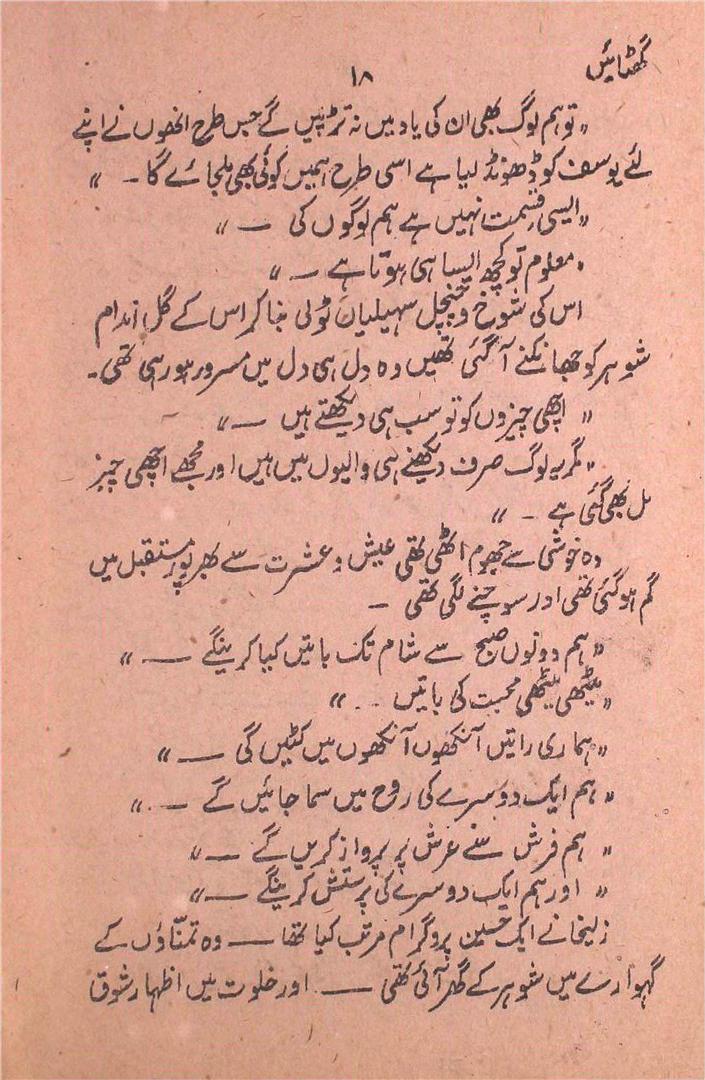 گھٹائیں
۱۸
"توہم لوگ بھی ان کی یاد میں نہ تڑپیں گے جس طرح انھوں نے اپنے
لئے یوسف کو ڈھونڈ لیا ہے اسی طرح ہمیں کوئی بھی ملجائے گا۔ "
"ایسی قسمت نہیں ہے ہم لوگوں کی — "
"معلوم تو کچھ ایسا ہی ہوتا ہے — "
اس کی شوخ و چنچل سہیلیاں ٹولی بنا کر اس کے گل اندام
شوہر کو جھانکنے آ گئی تھیں وہ دل ہی دل میں مسرور ہو رہی تھی۔
" اچھی چیزوں کو تو سب ہی دیکھتے ہیں — "
"مگر یہ لوگ صرف دیکھنے ہی والیوں میں ہیں اور مجھے اچھی چیز
مل بھی گئی ہے ۔ "
وہ خوشی سے جھوم اٹھی تھی عیش و عشرت سے بھرپور مستقبل میں
گم ہو گئی تھی اور سوچنے لگی تھی —
"ہم دونوں صبح سے شام تک باتیں کیا کرینگے — "
"میٹھی میٹھی محبت کی باتیں .. "
"ہماری راتیں آنکھوں آنکھوں میں کٹیں گی — "
"ہم ایک دوسرے کی روح میں سما جائیں گے —. "
" ہم فرش سے عرش پر پرواز کریں گے — "
" اور ہم ایک دوسرے کی پرستش کرینگے — "
زلیخا نے ایک حسین پروگرام مرتب کیا تھا — وہ تمنّاؤں کے
گہوارے میں شوہر کے گھر آئی تھی — اور خلوت میں اظہار شوق